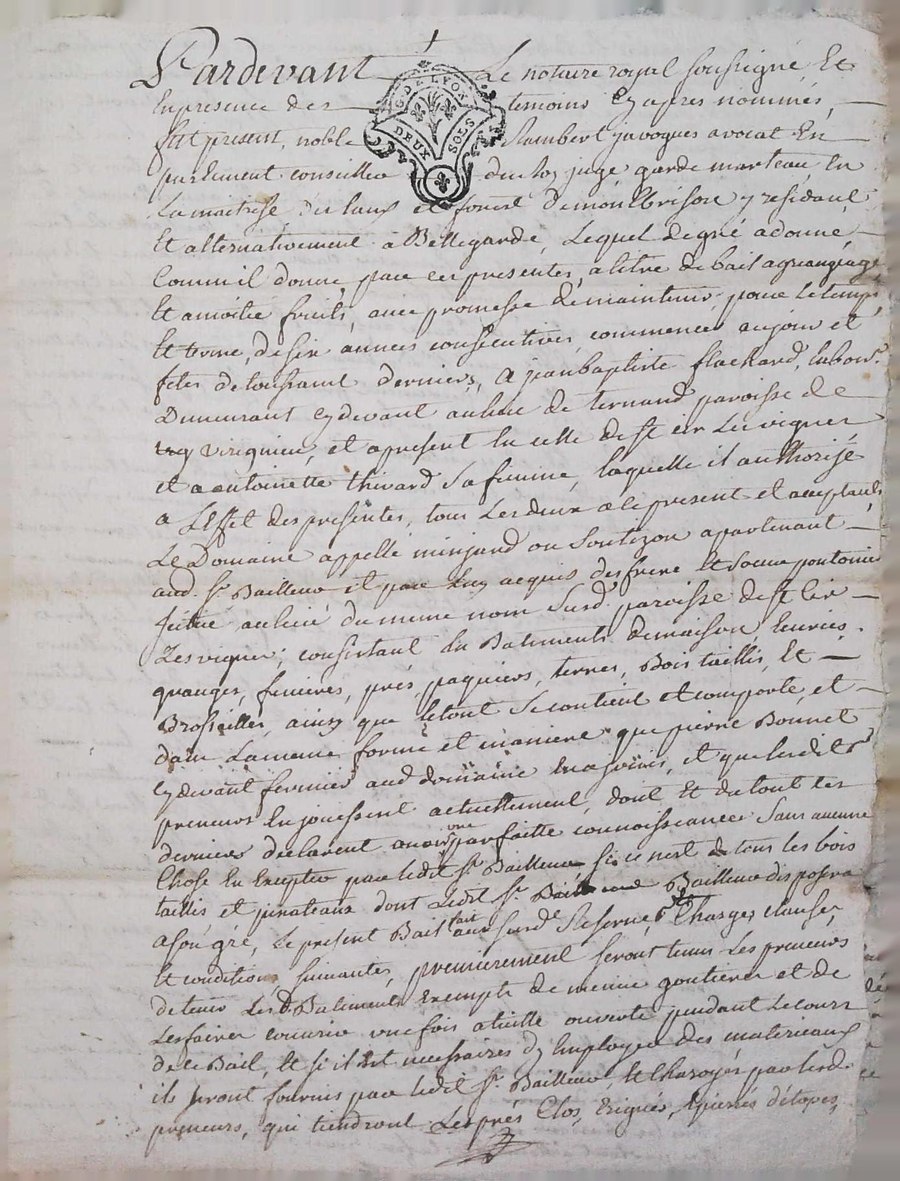 Pardevant Le notaire royal soussigné Et
En presence des temoins cy apres nommés,
fut present, noble Rambert javogues avocat En
parlement conseiller du Roy juge garde marteau En
La maitrise des Eaux et forest de montbrison y residant
Et alternativement a Bellegarde, Lequel de gré a donné
Comme il donne par ces presentes, a titre de bail a grangeage
Et a moitié fruits, avec promesse de maintenir, pour Le temps
Et terme de six années consecutives, commencées au jour et
fete de toussaint dernier, a jean baptiste flachard, labour.
Demeurant cy devant au lieu de ternand paroisse de
virignieu, et apresent En celle de st cir Les vignes
et a antoinette thivard Sa femme, laquelle il authorise
a L'Effet des presentes, tous Les deux a ce present et acceptants
Le Domaine appellé minjard ou Soutizon apartenant
aud. Sr. Bailleur et par Luy acquis des frere Et Soeur pontonnier
situé au lieu du meme nom Surd. paroisse de St Cir
Les vignes; consistant En Batiments de maison, Ecuries,
granges, fenieres, prés, paquiers, terres, Bois taillis, Et
Brosseilles, ainsy que le tout Se contient et comporte, et
dans La meme forme et maniere que pierre Bonnet
cy devant fermier aud. domaine En a joüi, et que lesdits
preneurs En joüissent actuellement, dont Et du tout ces
derniers declarent avoir une parfaitte connoissance Sans aucune
Chose En Excepter par ledit Sr. Bailleur Si ce n'est de tous les bois
taillis et pinateaux dont Ledit Sr. Bailleur disposera
a Son gré, Le present Bail fait aux Susd. Reserves, Charges, clauses,
Et conditions Suivantes, premierement seront tenus Les preneurs
de tenir Lesd. Batiments Exempts de menue goutieres et de
Les faire couvrir une fois a tuille ouverte pendant Le cours
de ce Bail, Et si il Est necessaires d'y Employer des materiaux
ils seront fournis par ledit Sr. Bailleur, Et Charoyés par lesd.
preneurs, qui tiendront Les prés Clos, Erignés, Epierrés d'étopes,
G. DE LYON
DEUX SOLS